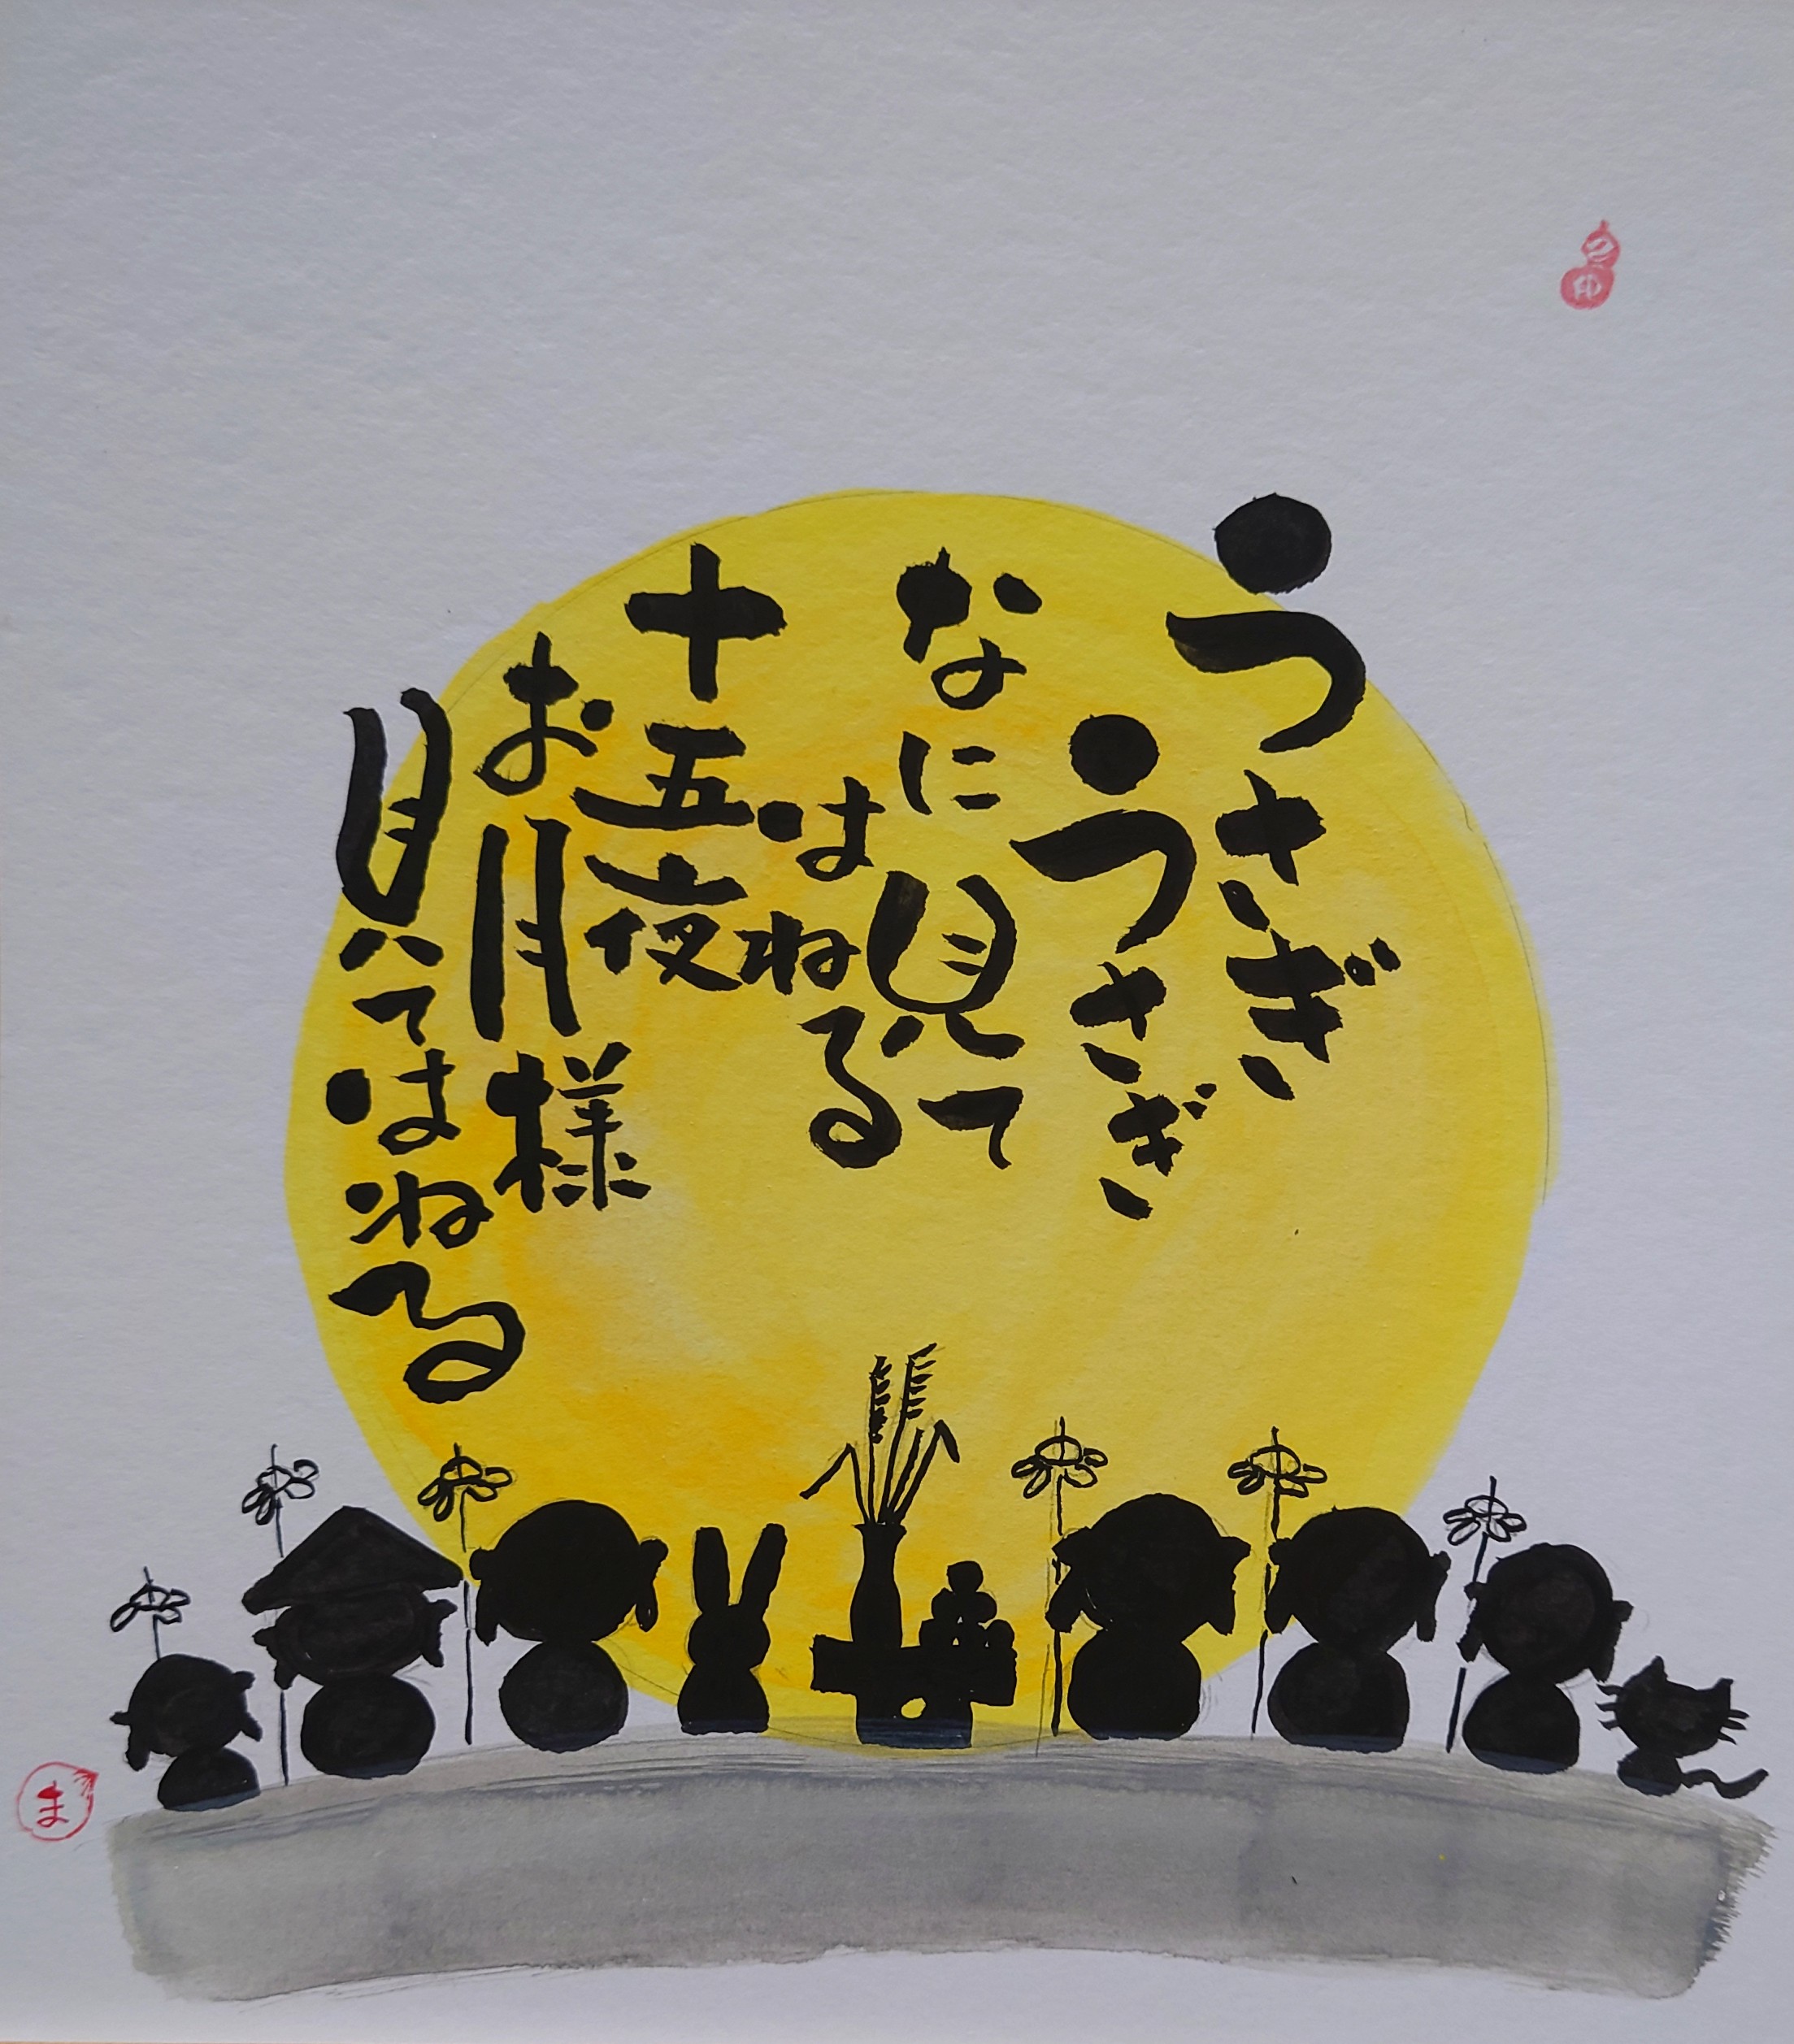 うさぎ
うさぎ
なに見て
はねる
十五夜
お月様
見てはねる
ま